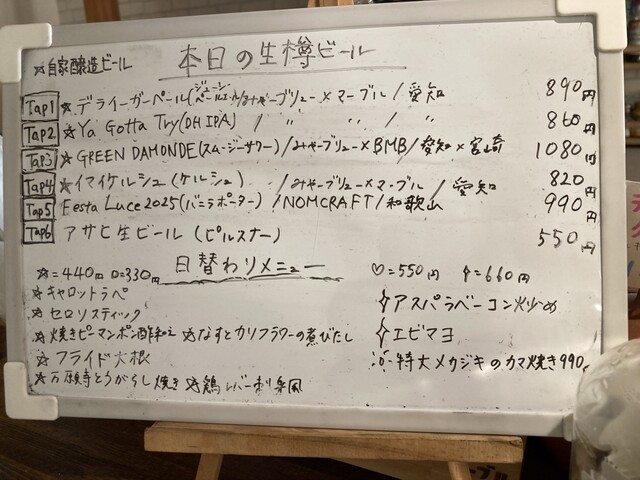 ☆自家醸造ビール 本日の生樽ビール
Tap1 ☆デライーガーペール(ジューシーペールエール)/みやーブリュー×マーブル/愛知 890円
Tap2 ☆Ya Gotta Try(DH IPA) / 〃 〃 / 〃 860円
Tap3 ☆GREEN DAMONDE(スムージーサワー)/みやーブリュー×BMB/愛知×宮崎 1080円
Tap4 ☆イマイケルシュ(ケルシュ) /みやーブリュー×マーブル/愛知 820円
Tap5 Festa Luce2025(バニラポーター)/NOMCRAFT/和歌山 990円
Tap6 アサヒ生ビール(ピルスナー) 550円
☆=440円 O=330円 日替わりメニュー ♡=550円 =660円
☆キャロットラペ
☆セロリスティック
☆焼きピーマンポン酢和え ☆なすとカリフラワーの煮びたし
☆フライド大根
☆万願寺とうがらし焼き ☆鶏レバー刺身風
アスパラベーコン炒め
エビマヨ
特大メカジキのカマ焼き990円